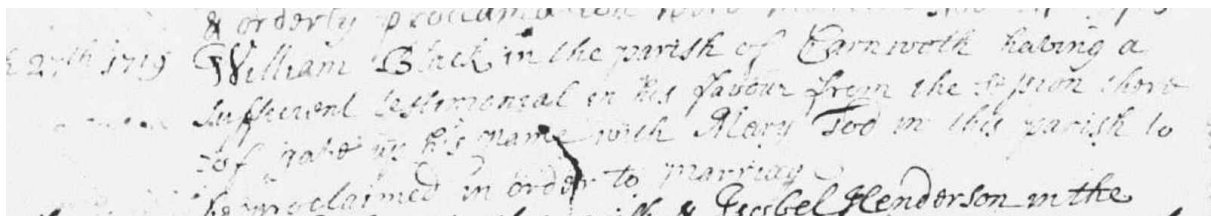 & orderly proclamation were
27th 1719 William Black in the parish of Carnwoth having a
sufficient testimonial in his favour from the session there
of gave up his name with Mary Tod in this parish to
be proclaimed in order to marriag
& Issobel Henderson in the